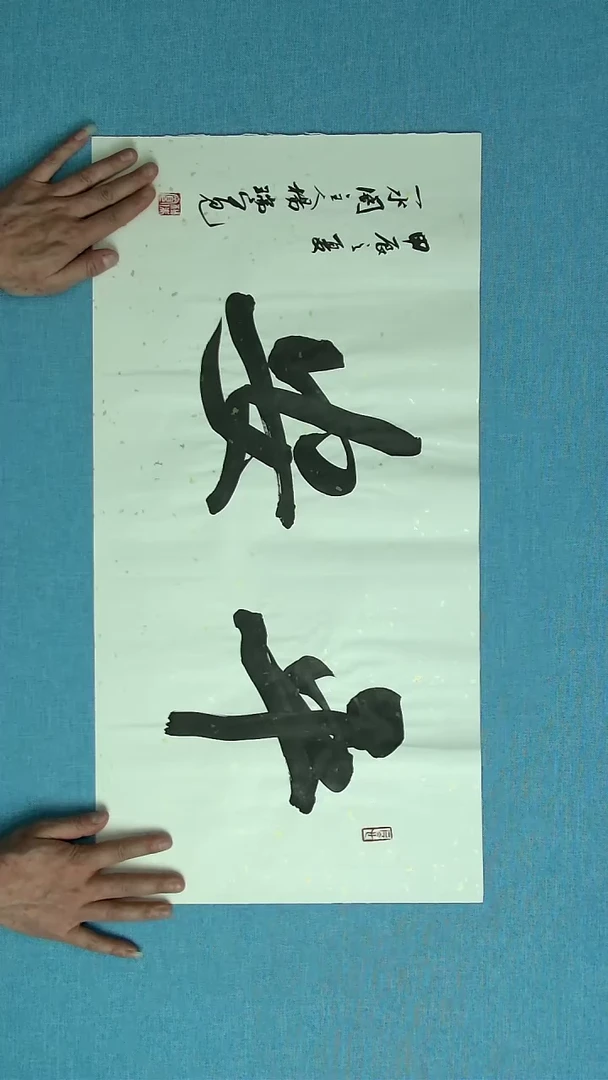 平安
甲辰之夏
一水阁主人楊瑞